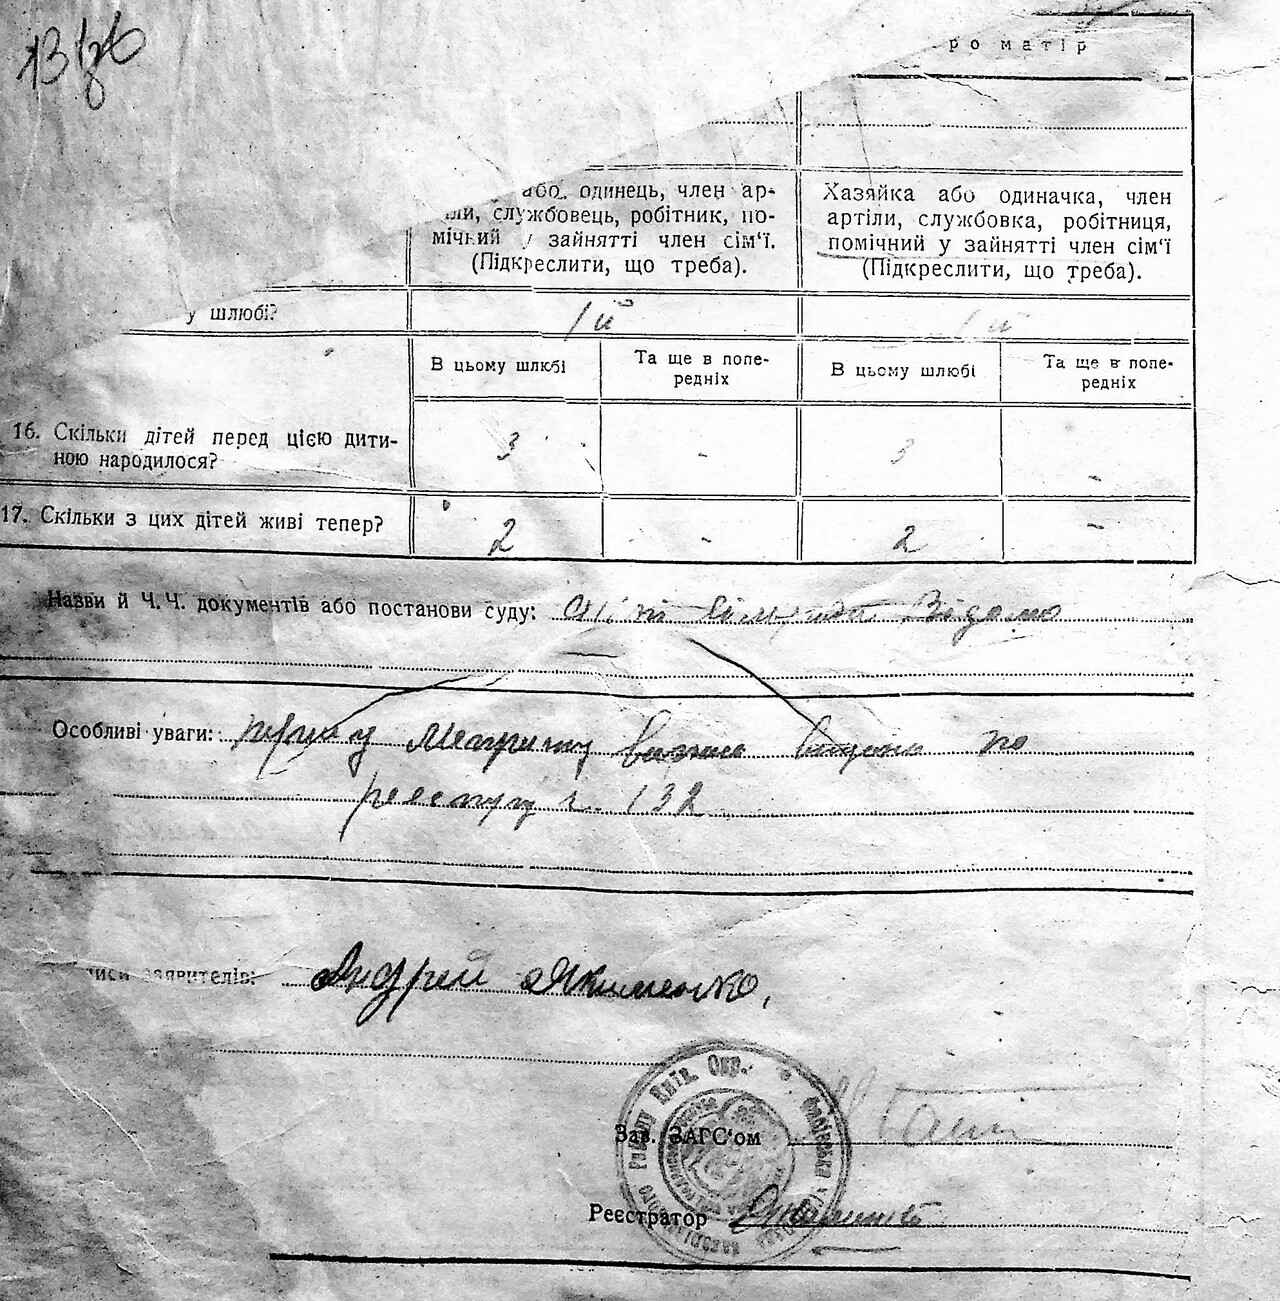 ро матір
або одинець, член ар-
службовець, робітник, по-
мічний у зайнятті член сім'ї.
(Підкреслити, що треба).
Хазяйка або одиначка, член
артіли, службовка, робітниця,
помічний у зайнятті член сім'ї
(Підкреслити, що треба).
у шлюбі? 1й 1й
В цьому шлюбі
Та ще в попе-
редніх
В цьому шлюбі
Та ще в попе-
редніх
16. Скільки дітей перед цією дити-
ною народилося? 3 - 3 -
17. Скільки з цих дітей живі тепер? 2 - 2 -
Назви й Ч.Ч. документів або постанови суду:
Особливі уваги:
реєстру ч. 132
заявителів: Андрей Якименко,
Зав. ЗАГС'ом
Реєстратор